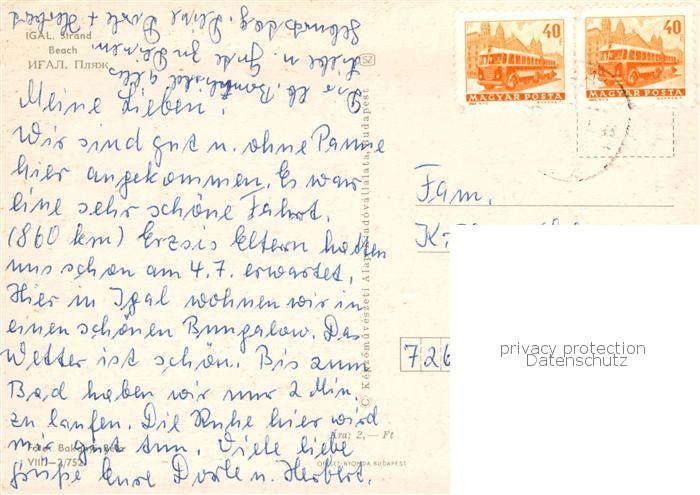 IGAL. Strand
Beach
ИГАЛ. Пляж
Meine Lieben!
Wir sind gut u. ohne Panne
hier angekommen. Es war
eine sehr schöne Fahrt.
(860 km) Erzsis Eltern hatten
uns schon am 4.7. erwartet.
Hier in Igal wohnen wir in
einem schönen Bungalow. Das
Wetter ist schön. Bis zum
Bad haben wir nur 2 Min.
zu laufen. Die Ruhe hier wird
mir gut tun. Viele liebe
grüße Eure Dorle u. Herbert.
alles
Liebe u. Gute zu Deinem
Geburtstag. Deine Dorle + Herbert
Foto:
VIII—2/752
SZ
© Képzőművészeti Alap Kiadóvállalata, Budapest
Ára: 2,— Ft
OFFSET-NYOMDA, BUDAPEST
40f
MAGYAR POSTA
40f
MAGYAR POSTA
Fam.
726
privacy protection
Datenschutz